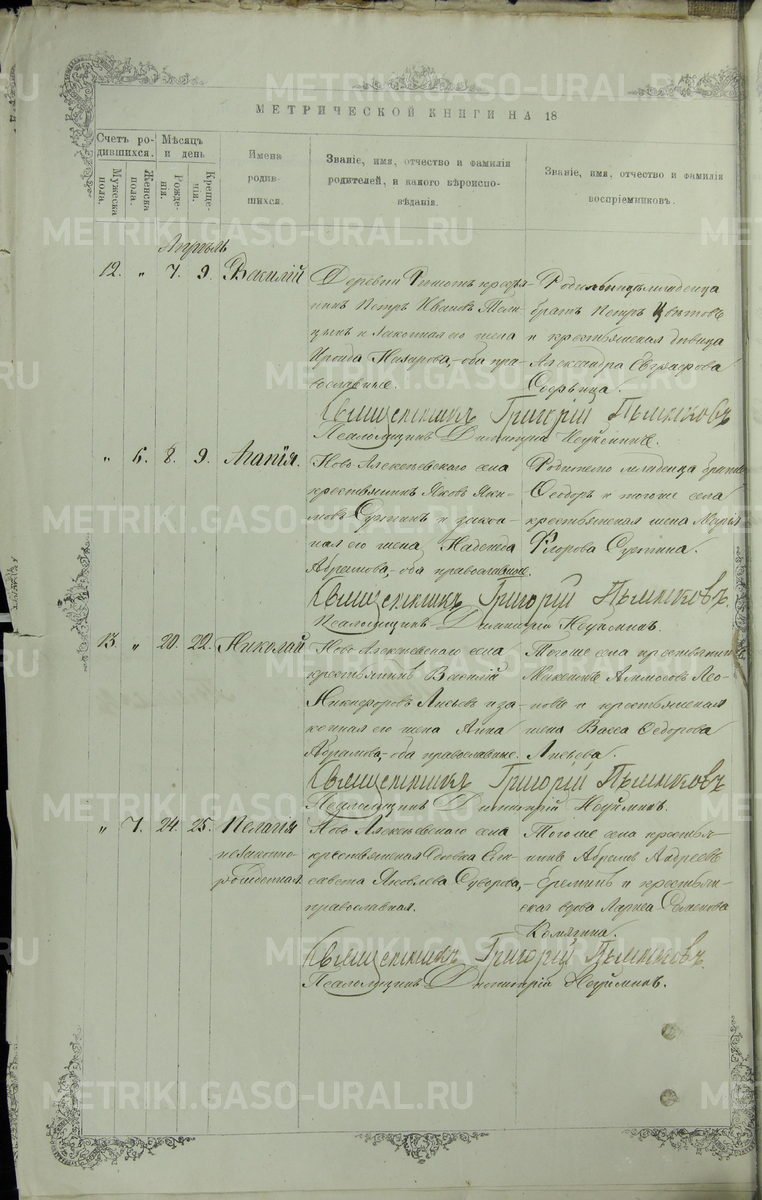 МЕТРИЧЕСКОЙ КНИГИ НА 18
Счетъ ро-
дившихся.
Мѣсяцъ
и день
Мужеска
пола.
Женска
пола.
Рожде-
нія.
Креще-
нія.
Имена
родив-
шихся.
Званіе, имя, отчество и фамилія
родителей, и какого вѣроиспо-
вѣданія.
Званіе, имя, отчество и фамилія
воспріемниковъ.
Апрѣль
12. " 7. 9. Василій
Деревни кресть-
нинъ Петръ Ивановъ
и законная его жена
Ираида Назарова, - оба пра-
вославные.
младенца
братъ Петръ
и крестьянская дѣвица
Александра Евграфова
Священникъ Григорій Пѣшковъ
Псаломщикъ Димитрій Неуйминъ.
" 6. 8. 9. Агапія.
Ново Алексѣевскаго села
крестьянинъ Яковъ Яки-
мовъ и закон-
ная его жена Надежда
Абрамова, - оба православные.
Родителю младенца братъ
Ѳеодоръ и тогоже села
крестьянская жена Марія
Священникъ Григорій Пѣшковъ.
Псаломщикъ Димитрій Неуйминъ.
13. " 20. 22. Николай
Ново Алексѣевскаго села
крестьянинъ Василій
Никифоровъ Лисьевъ и за-
конная его жена Анна
Абрамова, - оба православные.
Тогоже села крестьянинъ
Аммосовъ Лео-
новъ и крестьянская
жена Васса Ѳедорова
Лисьева.
Священникъ Григорій Пѣшковъ
Псаломщикъ Димитрій Неуйминъ.
" 7. 24. 25. Пелагія
незаконно-
рожденная.
Ново Алексѣевскаго села
крестьянская дѣвка Ели-
савета Яковлева Суворова, -
православная.
Тогоже села крестья-
нинъ Абрамъ Андреевъ
Ереминъ и крестьян-
ская вдова Лариса Семенова
Комягина.
Священникъ Григорій Пѣшковъ.
Псаломщикъ Димитрій Неуйминъ.
METRIKI.GASO-URAL.RU